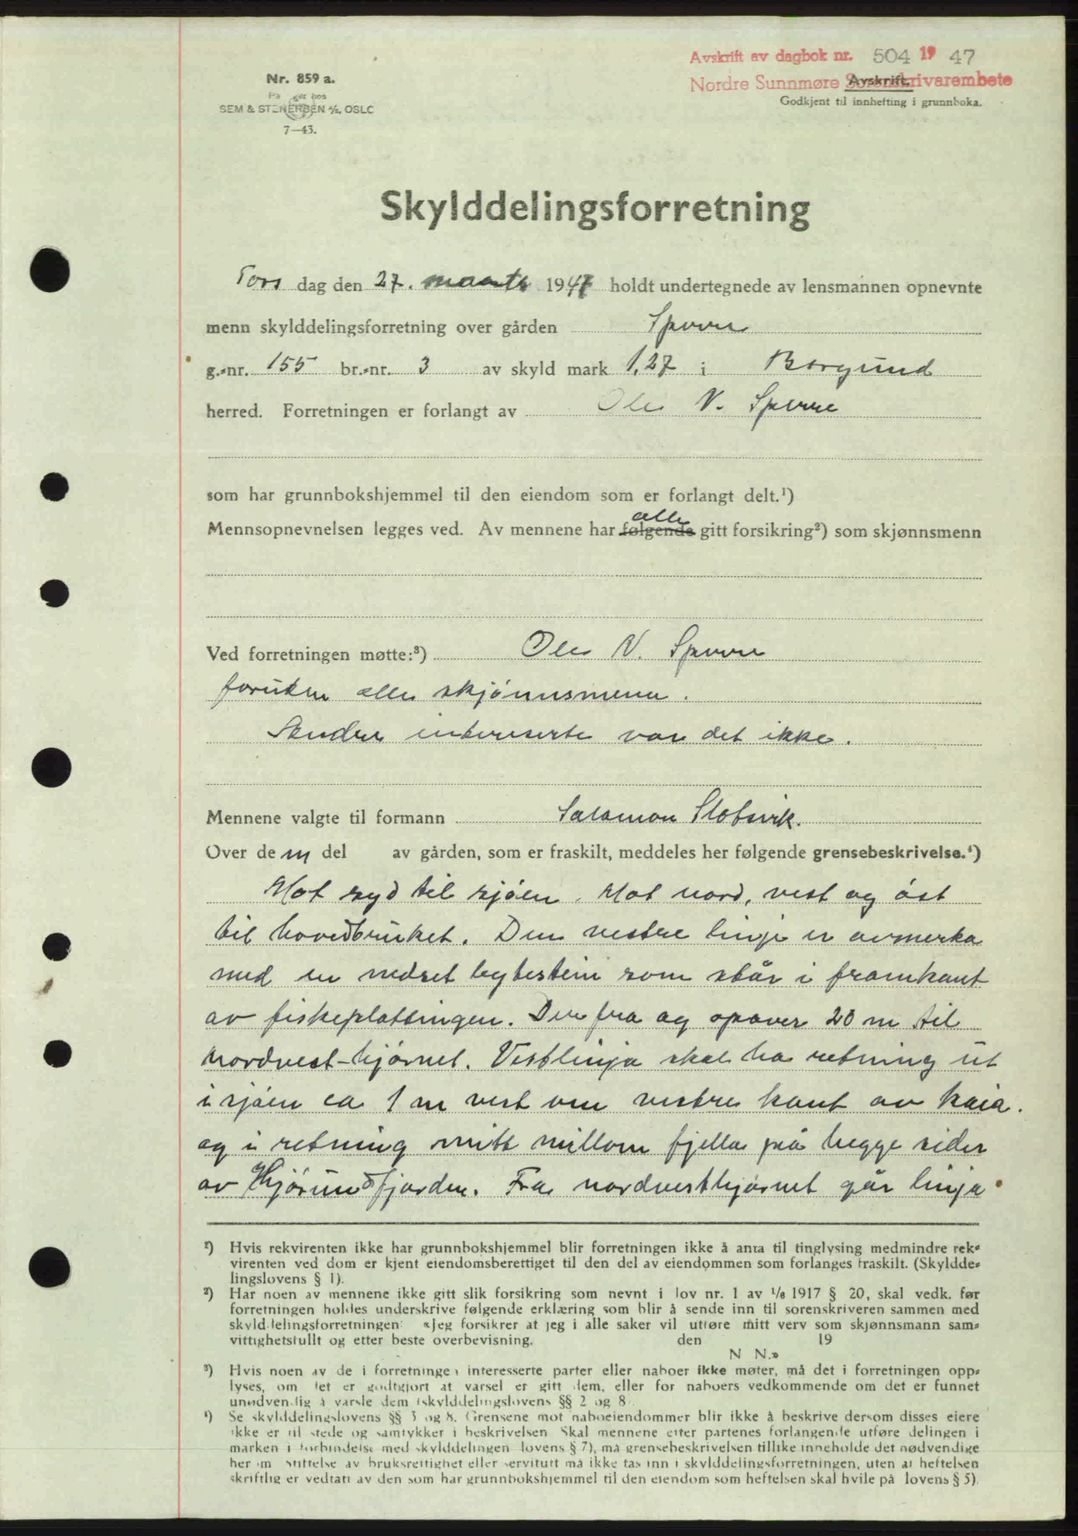 Avskrift av dagbok nr. 504 19 47
Nordre Sunnmøre Sorenskrivarembete
Avskrift.
Godkjent til innhefting i grunnboka.
Nr. 859 a.
SEM & STENERSEN A/S, OSLO
7—43.
Skylddelingsforretning
Tors dag den 27. marts 1947 holdt undertegnede av lensmannen opnevnte
menn skylddelingsforretning over gården Sperre
g.-nr. 155 br.-nr. 3 av skyld mark 1,27 i Borgund
herred. Forretningen er forlangt av Ole V. Sperre
som har grunnbokshjemmel til den eiendom som er forlangt delt.¹)
Mennsopnevnelsen legges ved. Av mennene har følgende alle gitt forsikring²) som skjønnsmenn
Ved forretningen møtte:³) Ole V. Sperre
foruten alle skjönnsmenn.
Andre interiserte var det ikke.
Mennene valgte til formann Salamon Slotsvik.
Over de m del av gården, som er fraskilt, meddeles her følgende grensebeskrivelse.⁴)
Mot syd til sjöen. Mot nord, vest og öst
til hovedbruket. Den vestre linje er avmerka
med en nedset bytestein som står i framkant
av fiskeplattingen. Der fra og opover 20 m til
nordvest-hjörnet. Vestlinja skal ha retning ut
i sjöen ca 1 m vest om vestre kant av kaia.
og i retning mitt millom fjella på begge sider
av Hjörundfjorden. Fra nordvesthjörnet går linja
¹) Hvis rekvirenten ikke har grunnbokshjemmel blir forretningen ikke å anta til tinglysing medmindre rek-
virenten ved dom er kjent eiendomsberettiget til den del av eiendommen som forlanges fraskilt. (Skyldde-
lingslovens § 1).
²) Har noen av mennene ikke gitt slik forsikring som nevnt i lov nr. 1 av 1/6 1917 § 20, skal vedk. før
forretningen holdes underskrive følgende erklæring som blir å sende inn til sorenskriveren sammen med
skylddelingsforretningen: «Jeg forsikrer at jeg i alle saker vil utføre mitt verv som skjønnsmann sam-
vittighetsfullt og etter beste overbevisning. den 19
N N.»
³) Hvis noen av de i forretningen interesserte parter eller naboer ikke møter, må det i forretningen opp-
lyses, om det er godtgjort at varsel er gitt dem, eller for naboers vedkommende om det er funnet
unødvendig å varsle dem (skylddelingslovens §§ 2 og 8
⁴) Se skylddelingslovens §§ 3 og 8. Grensene mot naboeiendommer blir ikke å beskrive dersom disses eiere
ikke er til stede og samtykker i beskrivelsen Skal mennene etter partenes forlangende utføre delingen i
marken i forbindelse med skylddelingen lovens § 7), må grensebeskrivelsen tillike inneholde det nødvendige
her om Stiftelse av bruksrettighet eller servitutt må ikke tas inn i skylddelingsforretningen, uten at heftelsen
skriftlig er vedtatt av den som har grunnbokshjemmel til den eiendom som heftelsen skal hvile på lovens § 5).